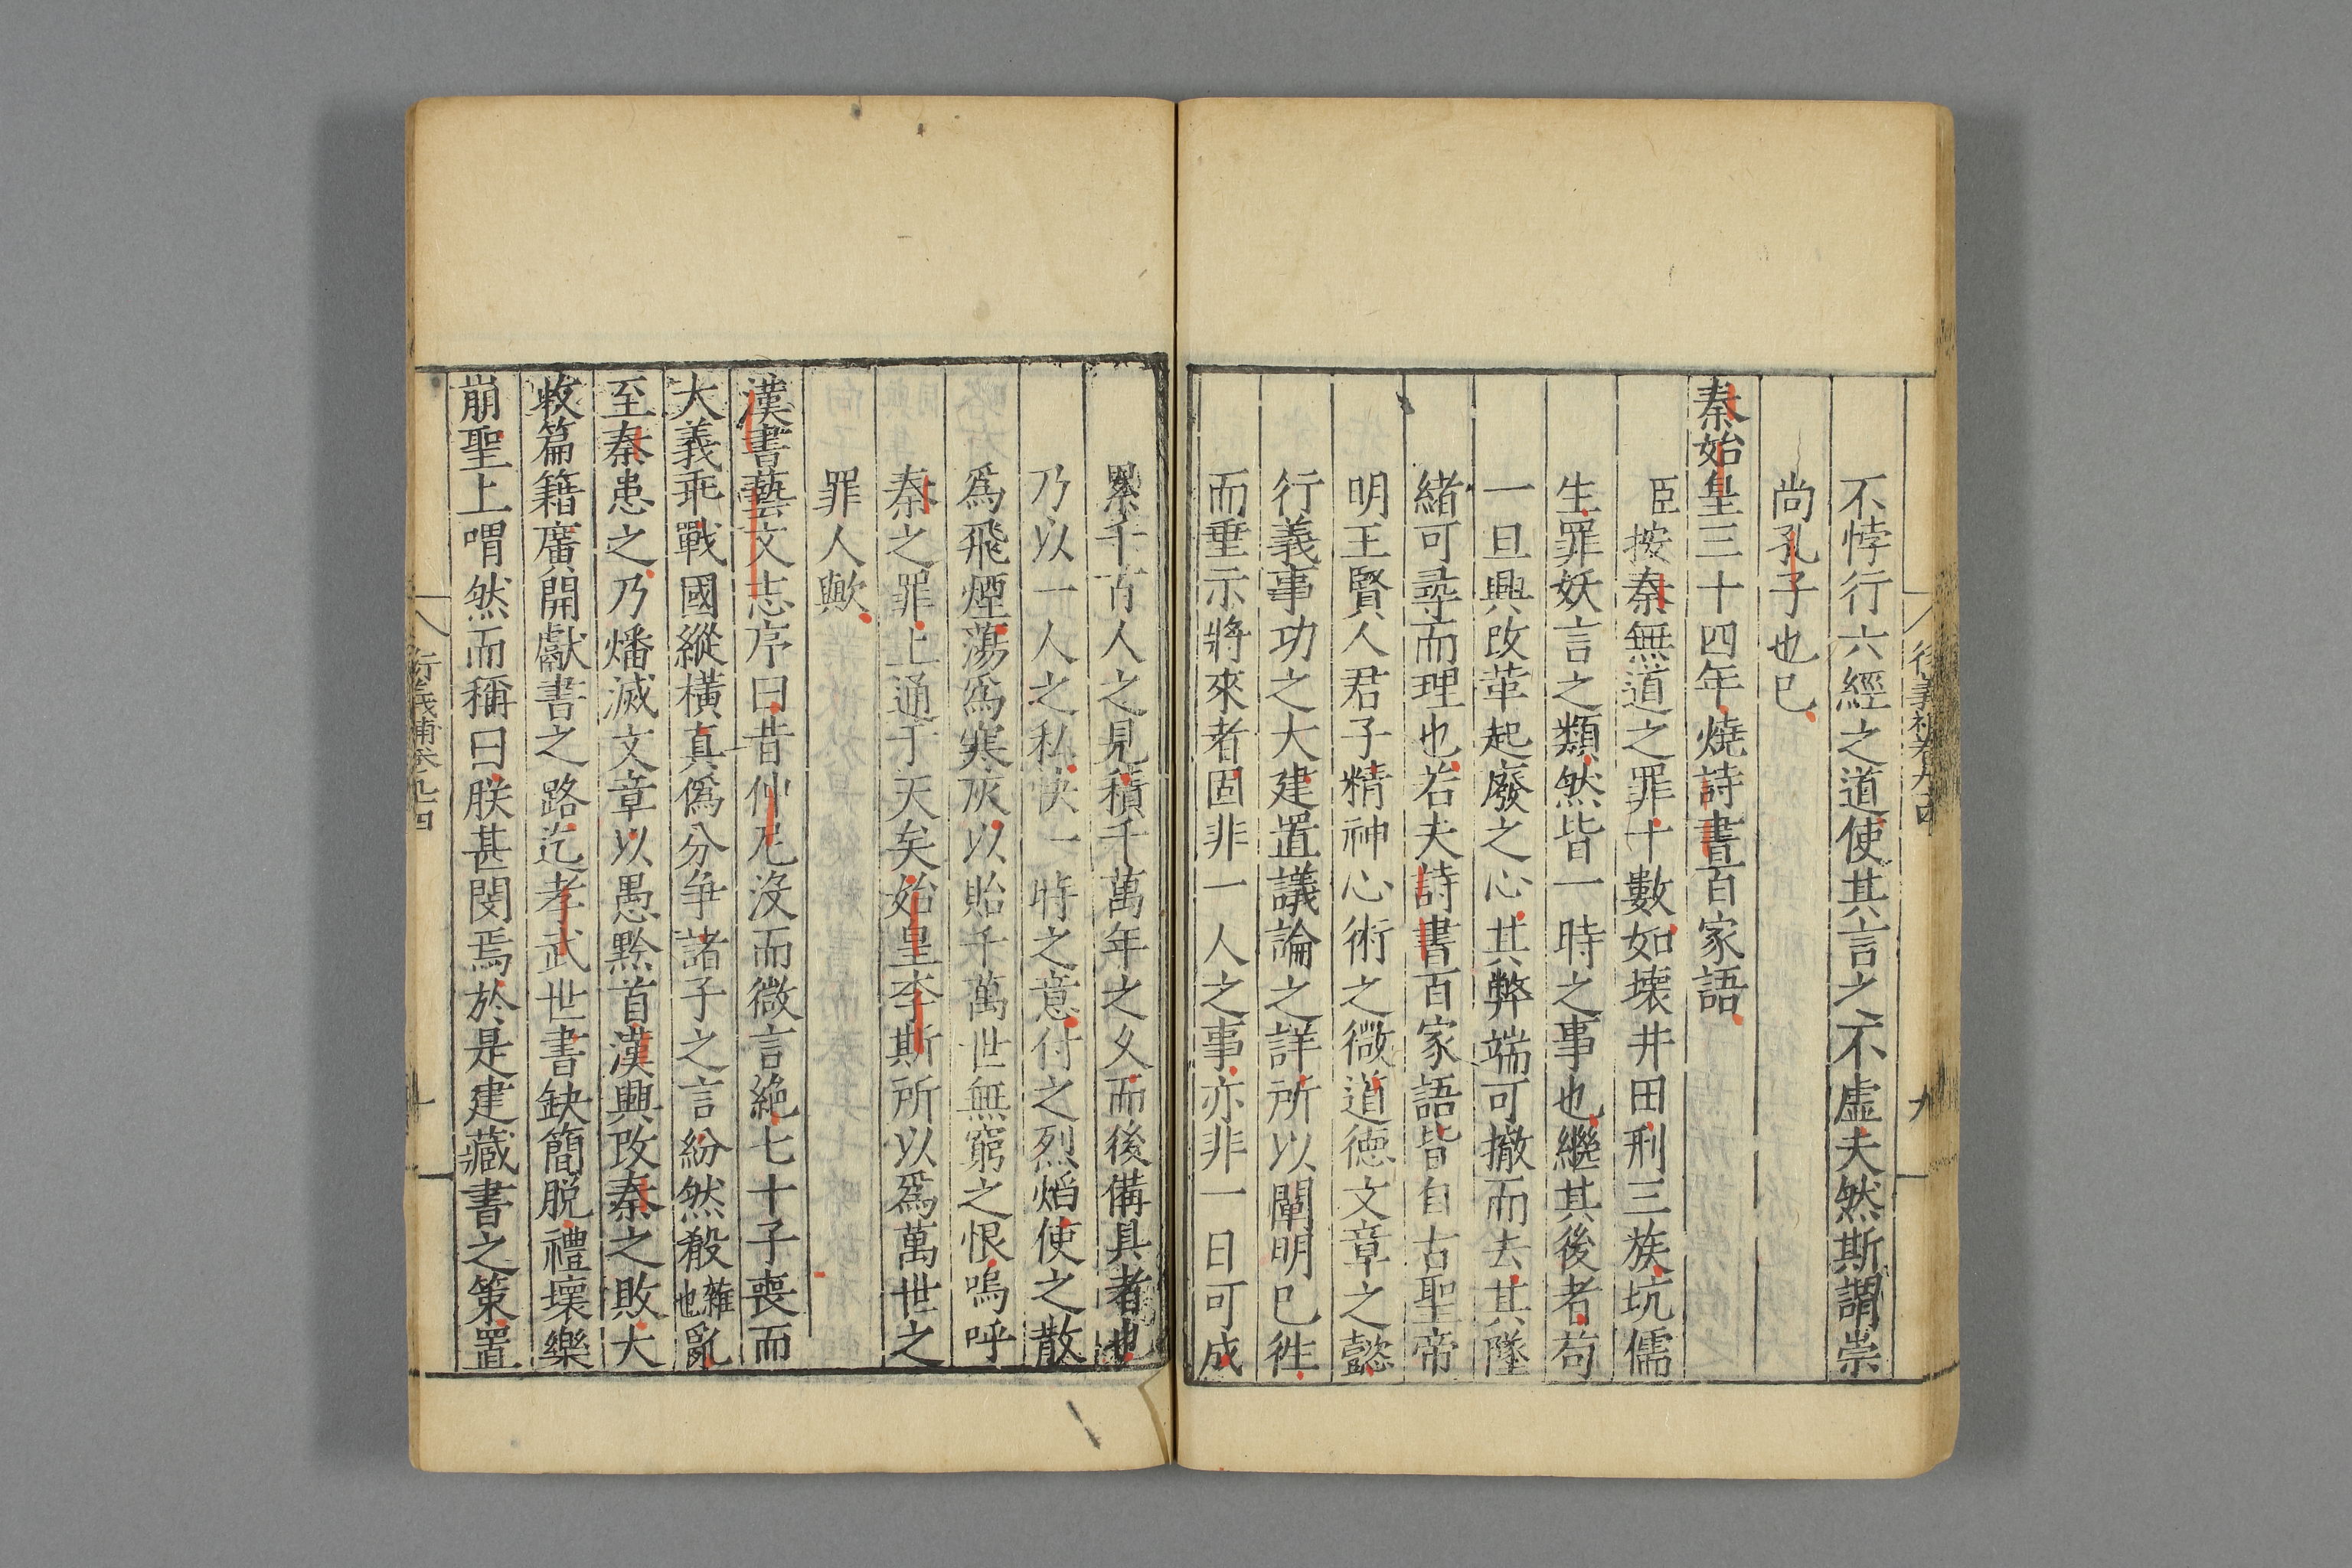 不悖行六經之道使其言之不虛夫然斯謂崇
尚孔子也已
秦始皇三十四年燒詩書百家語
臣按秦無道之罪十數如壞井田刑三族坑儒
生罪妖言之類然皆一時之事也繼其後者苟
一旦興改革起廢之心其弊端可撤而去其墜
緒可尋而理也若夫詩書百家語皆自古聖帝
明王賢人君子精神心術之微道德文章之懿
行義事功之大建置議論之詳所以闡明已徃
而垂示將來者固非一人之事亦非一日可成
累千百人之見積千萬年之乆而後備具者也
乃以一人之私快一時之意付之烈焰使之散
爲飛煙蕩爲寒灰以貽千萬世無窮之恨嗚呼
秦之罪上通于天矣始皇李斯所以爲萬世之
罪人歟
漢書藝文志序曰昔仲尼沒而微言絶七十子喪而
大義乖戰國縱橫真僞分争諸子之言紛然殽雜也亂
至秦患之乃燔滅文章以愚黔首漢興攺秦之敗大
收篇籍廣開獻書之路迄孝武世書缺簡脱禮壞樂
崩聖上喟然而稱曰朕甚閔焉於是建藏書之策置
衍義補卷九十四